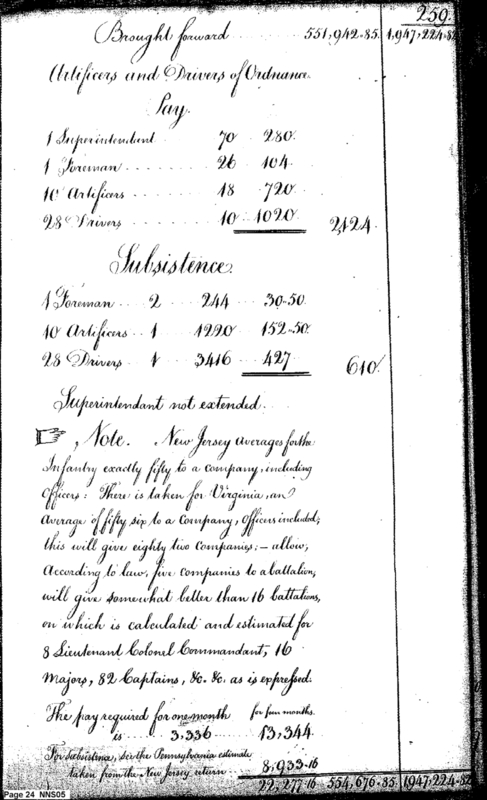 259.
Brought forward 551,942.85. 1,947,224.82
Artificers and Drivers of Ordnance.
Pay.
1 Superintendent 70 280.
1 Foreman 26 104.
10 Artificers 18 720.
28 Drivers 10 1020. 2,124.
Subsistence.
1 Foreman 2 244 30.50.
10 Artificers 1 1220 152.50.
28 Drivers 1 3416 427. 610.
Superintendant not extended.
Note. New Jersey averages for the
Infantry exactly fifty to a company, including
Officers: There is taken for Virginia, an
average of fifty six to a Company, Officers included;
this will give eighty two companies; — allow,
According to law, five companies to a battalion,
will give somewhat better than 16 battalions,
on which is calculated and estimated for
8 Lieutenant Colonel Commandant, 16
Majors, 82 Captains, &c. &c. as is expressed.
The pay required for one month for four months.
is 3,336 13,344.
For Subsistence, see the Pennsylvania estimate
taken from the New Jersey return 8,933.16
22,277.16 554,676.85. 1,947,224.82
Page 24 NNS05